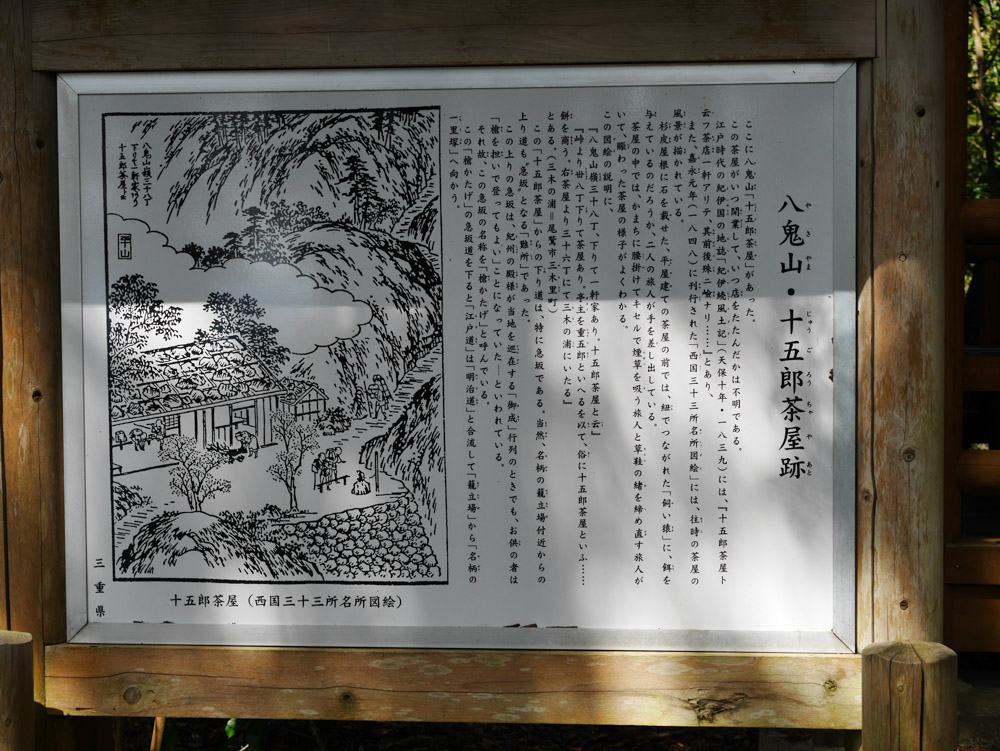 八鬼山・十五郎茶屋跡
やきやま じゅうごろうちゃやあと
ここに八鬼山「十五郎茶屋」があった。
この茶屋がいつ開業して、いつ店をたたんだかは不明である。
江戸時代の紀伊国の地誌「紀伊続風土記」(天保十年・一八三九)には、『十五郎茶屋ト
云フ茶店一軒アリテ、其前後殊ニ嶮ナリ……』とあり、
また、嘉永元年(一八四八)に刊行された「西国三十三所名所図絵」には、往時の茶屋の
風景が描かれている。
杉皮屋根に石を載せた、平屋建ての茶屋の前では、紐でつながれた「飼い猿」に、餌を
与えているのだろうか、二人の旅人が手を差し出している。
茶屋の中では、かまちに腰掛けてキセルで煙草を吸う旅人と草鞋の緒を締め直す旅人が
いて、賑わった茶屋の様子がよくわかる。
この図絵の説明に、
『八鬼山嶺三十八丁、下りて一軒家あり。十五郎茶屋と云』
『峠より丗八丁下りて茶屋あり。亭主を重五郎といへるを以て、俗に十五郎茶屋といふ……
餅を商う。右茶屋より三十六丁にて三木の浦にいたる』
とある。(三木の浦=尾鷲市三木里町)
この「十五郎茶屋」からの下り道は、特に急坂である。当然、名柄の籠立場付近からの
上り道も〝急坂〟となる「難所」であった。
この上りの急坂は、紀州の殿様が当地を巡在する「御成」行列のときでも、お供の者は
「槍を担いで登ってもよい」ことになっていた―といわれている。
それ故、この急坂の名称を「槍かたげ」と呼んでいる。
この「槍かたげ」の急坂道を下ると「江戸道」は「明治道」と合流して「籠立場」から「名柄の
一里塚」へ向かう。
八鬼山嶺三十八丁
下りて一軒家あり
十五郎茶屋と云
三重県
十五郎茶屋(西国三十三所名所図絵)